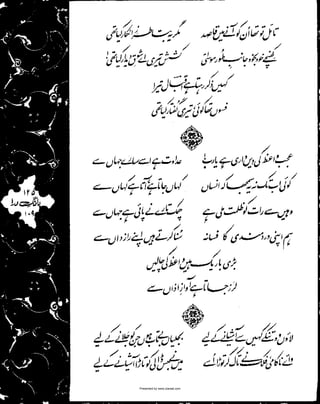 تامل تو تھا ان کو آنے میں قاصد مگر یہ بتا طرزِ انکار کیا تھی
کھنچے خود بخود جانبِ طور موسیٰ کشش تیری اے شوقِ دیدار کیا تھی
کہیں ذکر رہتا ہے اقبال تیرا
فسوں تھا کوئی تیری گفتار کیا تھی
عجب واعظ کی دیں داری ہے یا رب عداوت ہے اسے سارے جہاں سے
کوئی اب تک نہ یہ سمجھا کہ انساں کہاں جاتا ہے آتا ہے کہاں سے
وہیں سے رات کو ظلمت ملی ہے چمک تارے نے پائی ہے جہاں سے
ہم اپنی دردمندی کا فسانہ سنا کرتے ہیں اپنے رازداں سے
بڑی باریک ہیں واعظ کی چالیں
لرز جاتا ہے آوازِ اذاں سے
لاؤں وہ تنکے کہیں سے آشیانے کے لیے بجلیاں بیتاب ہوں جن کو جلانے کے لیے
وائے ناکامی فلک نے تاک کر توڑا اسے میں نے جس ڈالی کو تاڑا آشیانے کے لیے
۱۲۵
بانگِ درا
۱۰۹